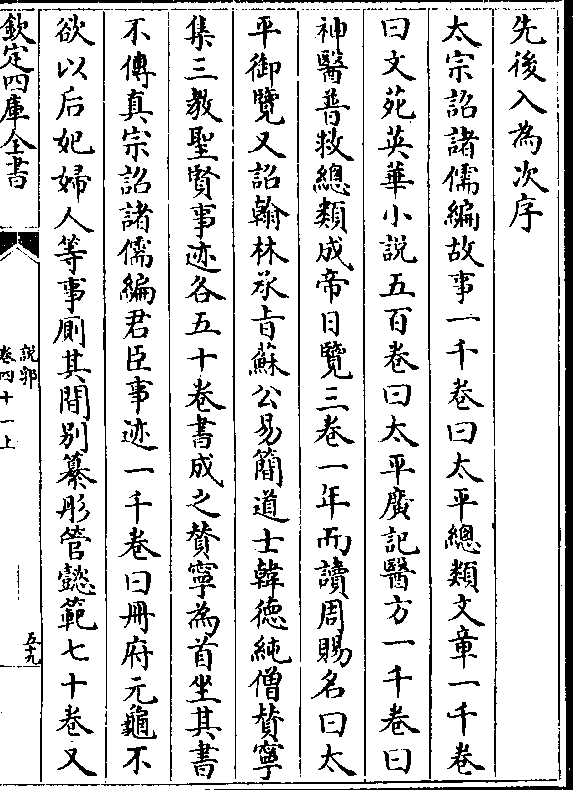 先後入為次序
太宗詔諸儒編故事一千卷曰太平總類文章一千卷
曰文苑英華小說五百卷曰太平廣記醫方一千卷曰
神醫普救總類成帝日覽三卷一年而讀周賜名曰太
平御覽又詔翰林承旨蘇公易簡道士韓德純僧贊寧
集三教聖賢事迹各五十卷書成之贊寧為首坐其書
不傳真宗詔諸儒編君臣事迹一千卷曰冊府元龜不
欲以后妃婦人等事厠其間別纂彤管懿範七十卷又
欽定四庫全書
說郛
卷四十一上
五十九